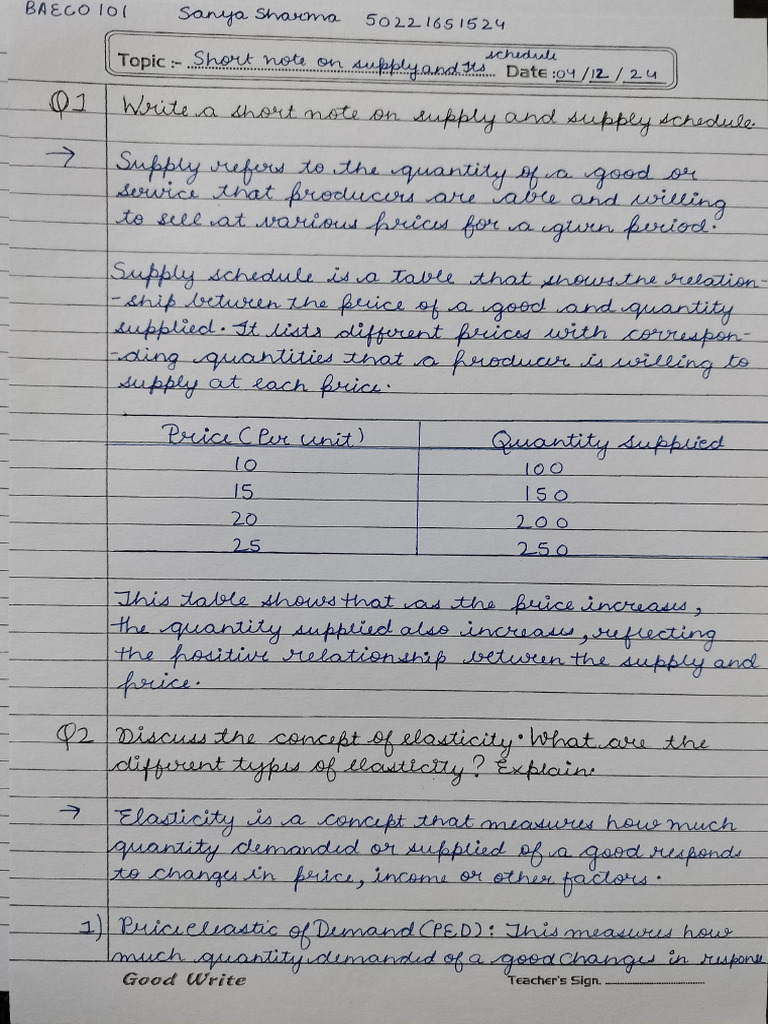 BAECO 101 Sanya Sharma 50221651524
schedule
Topic :- Short note on supply and Its Date :04/12/24
Q1 Write a short note on supply and supply schedule.
→ Supply refers to the quantity of a good or
service that producers are able and willing
to sell at various prices for a given period.
Supply schedule is a table that shows the relation-
-ship between the price of a good and quantity
supplied. It lists different prices with correspon-
-ding quantities that a producer is willing to
supply at each price.
Price (Per unit) Quantity supplied
10 100
15 150
20 200
25 250
This table shows that as the price increases,
the quantity supplied also increases, reflecting
the positive relationship between the supply and
price.
Q2 Discuss the concept of elasticity. What are the
different types of elasticity? Explain.
→ Elasticity is a concept that measures how much
quantity demanded or supplied of a good responds
to changes in price, income or other factors.
1) Price eleastic of Demand (PED): This measures how
much quantity demanded of a good changes in response
Good Write Teacher's Sign.